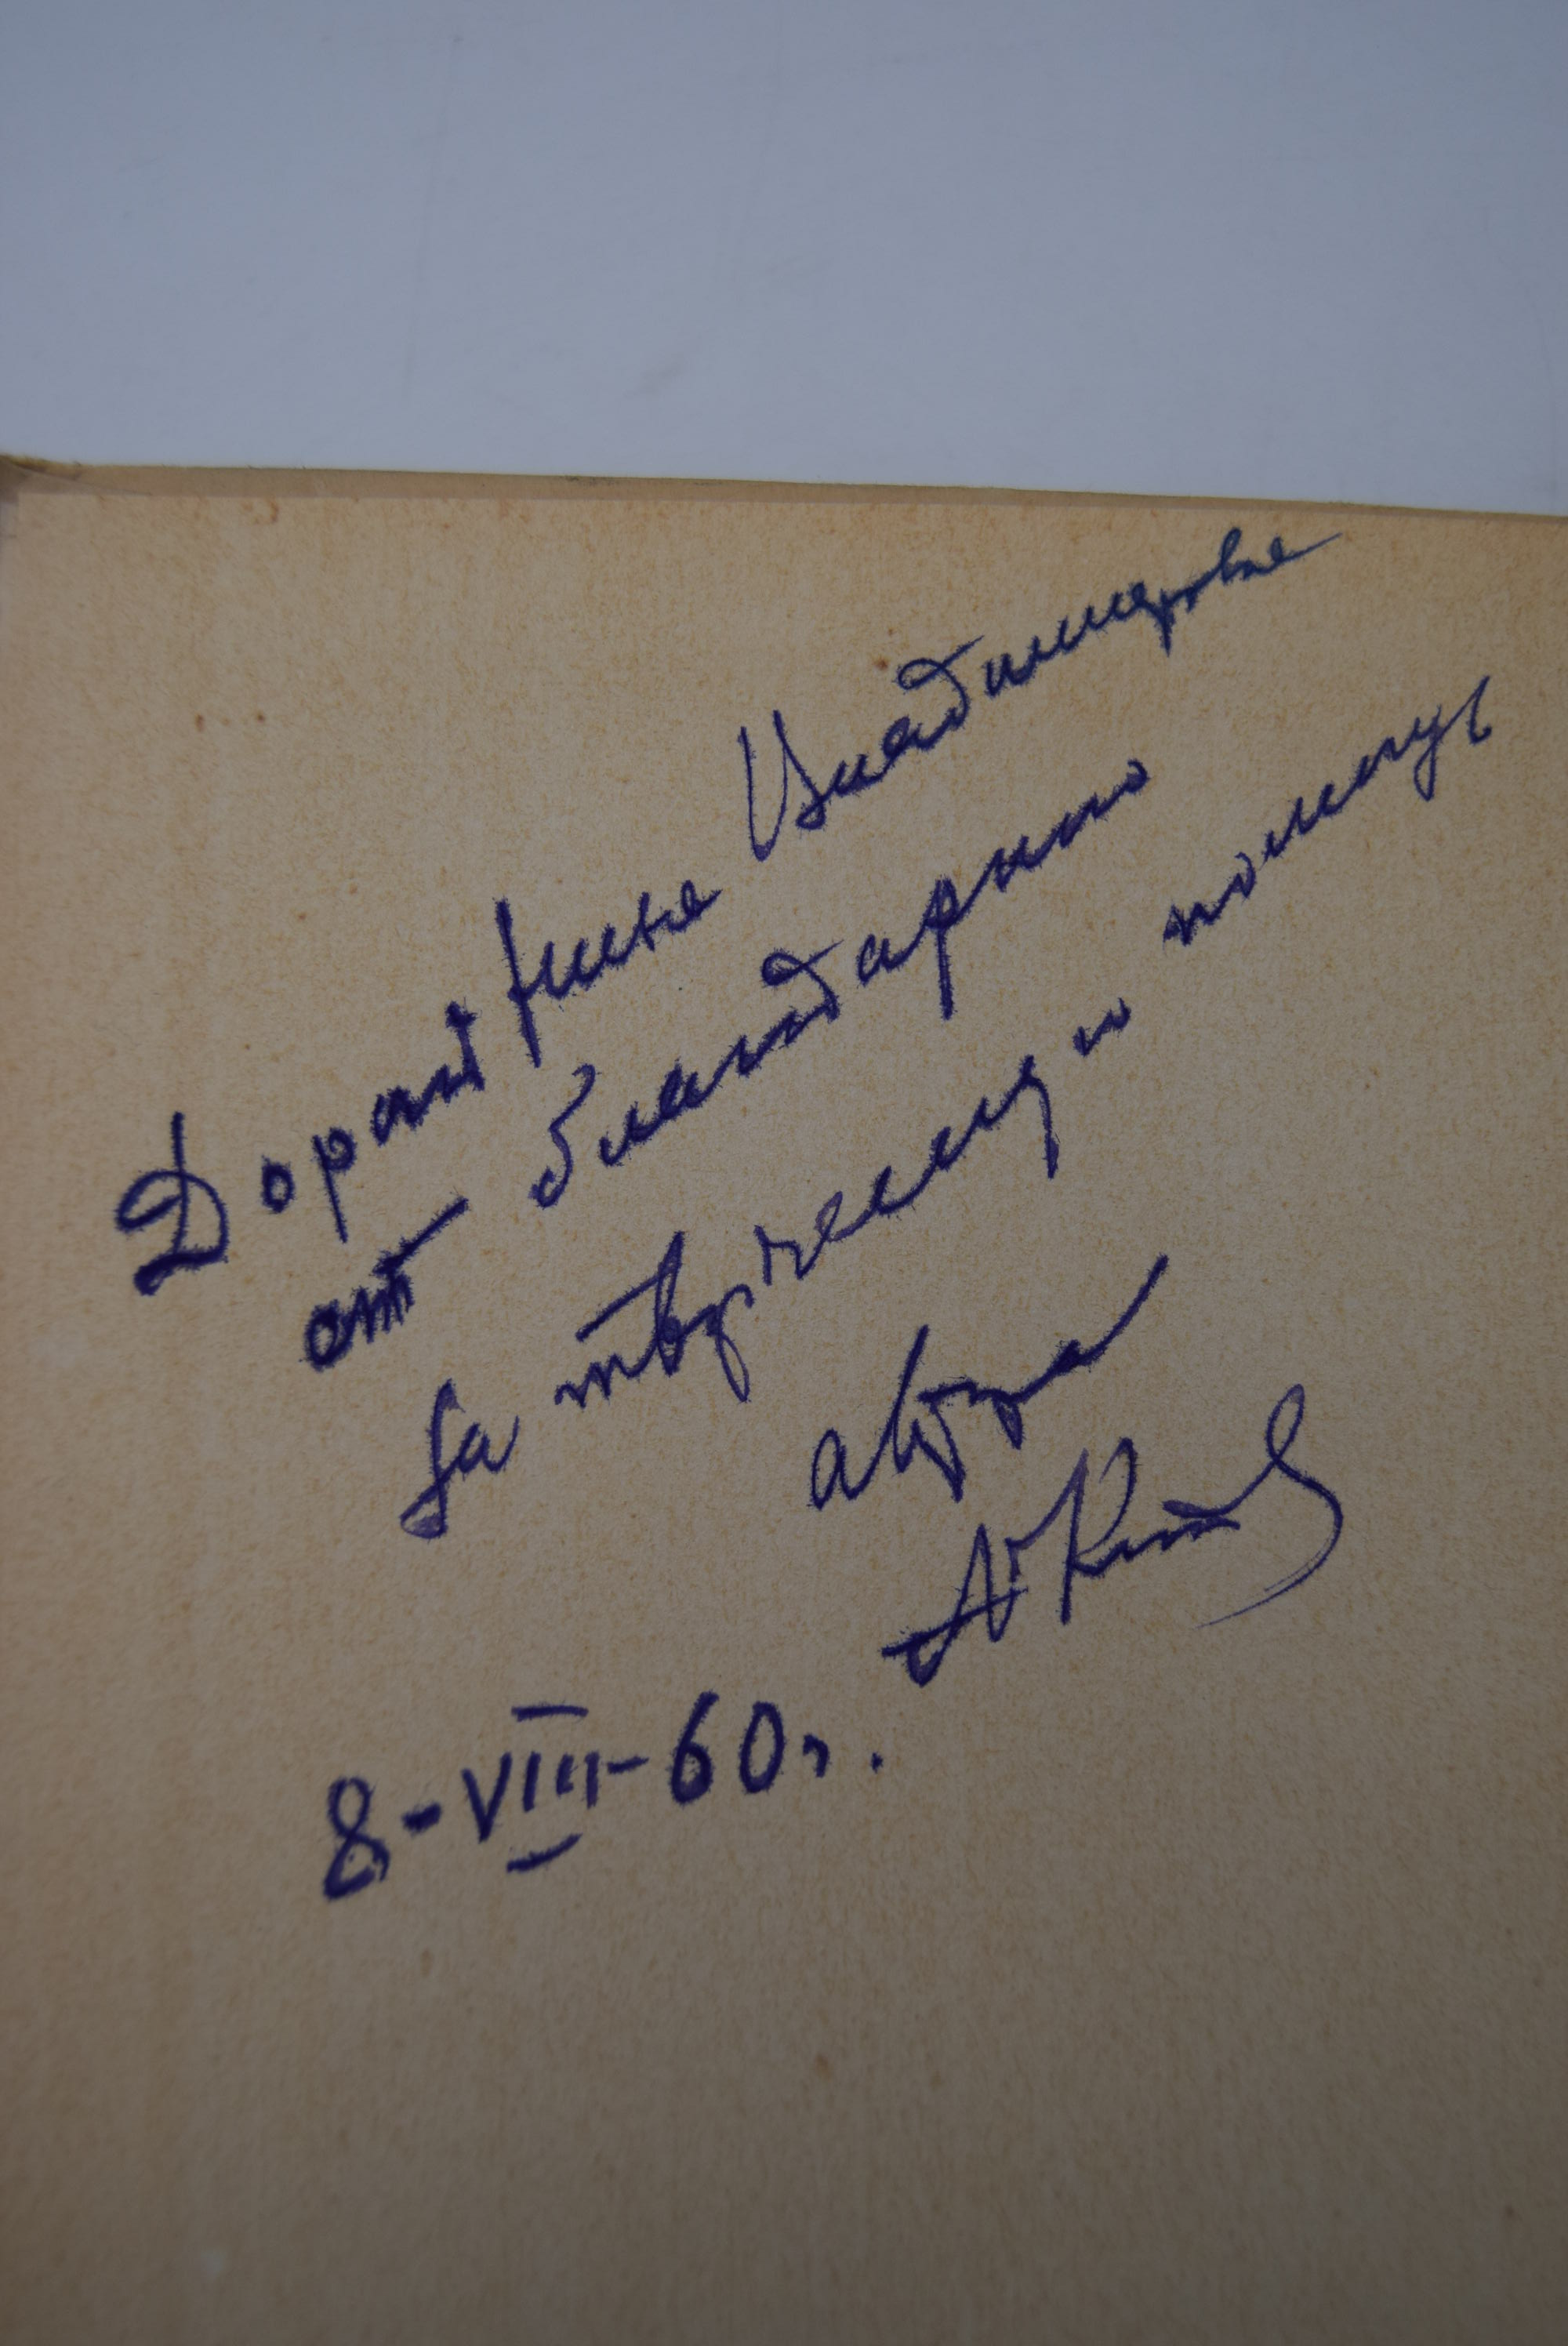 Дорогой Владимировне
от благодарного
за творческую и помощь
автора
8-VIII-60 г.